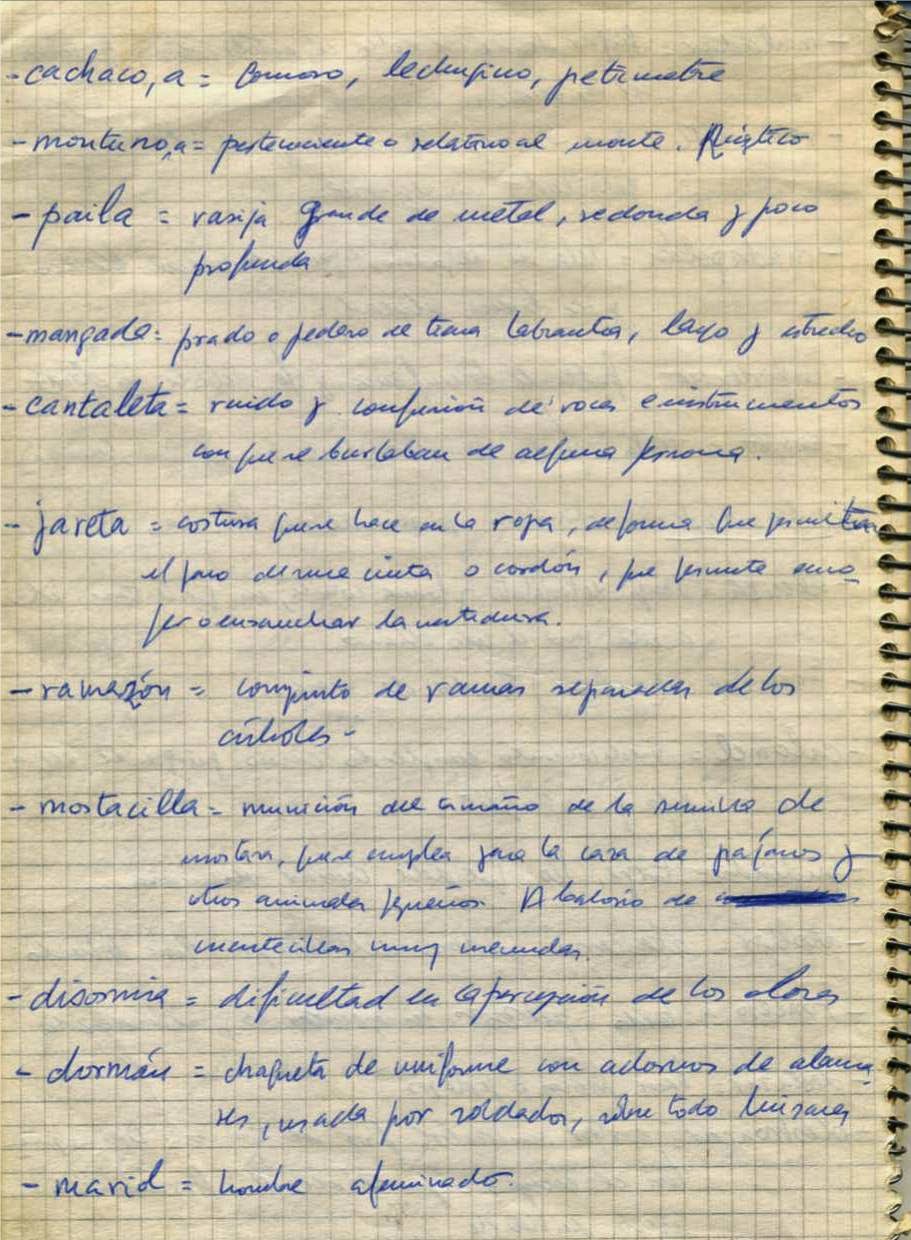 - cachaco, a = lechugino, petimetre
- montuno, a = perteneciente o relativo al monte. Rústico
- paila = vasija grande de metal, redonda y poco
profunda
- mangada = prado o pedazo de tierra labrantía, largo y estrecho
- cantaleta = ruido y confusión de voces e instrumentos
con que se burlaban de alguna persona.
- jareta = costura que se hace en la ropa, de forma que permitan
el paso de una cinta o cordón, que permite
o ensanchar la vestidura.
- ramazón = conjunto de ramas separadas de los
árboles -
- mostacilla = munición del tamaño de la semilla de
mostaza, que se emplea para la caza de pájaros y
otros animales pequeños. Abalorio de
cuentecillas muy menudas.
- disosmia = dificultad en la percepción de los olores
- dormán = chaqueta de uniforme con adornos de alama-
res, usada por soldados, sobre todo húsares
- hombre afeminado.